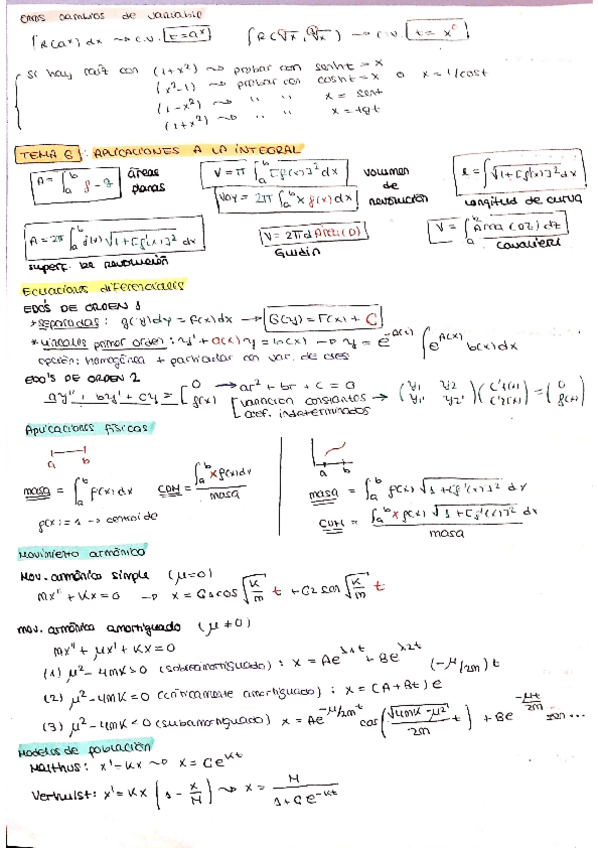 CASOS cambios de variable
∫R(aˣ)dx ⇝ c.v. t=aˣ   ∫R(ᵖ√x, ᵠ√x) ⇝ c.v. t=x
si hay raíz con (1+x²) ⇝ probar con senht = x
(x²-1) ⇝ probar con cosht = x o x = 1/cost
(1-x²) ⇝ " " x = sent
(1+x²) ⇝ " " x = tgt
TEMA 6: APLICACIONES A LA INTEGRAL
A = ∫ₐᵇ f - g áreas planas
V = π ∫ₐᵇ [f(x)]² dx
Voy = 2π ∫ₐᵇ x f(x) dx
volumen de revolución
l = ∫ √1+[f'(x)]² dx
Longitud de curva
A = 2π ∫ₐᵇ f(x) √1+[f'(x)]² dx
superf. de revolución
V = 2πd Área(D)
Guldin
V = ∫ₐᵇ Area (Dz) dz
Cavalieri
Ecuaciones diferenciales
EDO'S DE ORDEN 1
*separadas: g(y)dy = f(x)dx → G(y) = F(x) + C
*Lineales primer orden: y' + a(x)y = b(x) → y = e^-A(x) ∫ e^A(x) b(x)dx
opción: homogénea + particular con var. de ctes
EDO'S DE ORDEN 2
ay'' + by' + cy = [0 → ar² + br + c = 0
g(x) [variación constantes → (y₁ y₂ y₁' y₂') (C₁'(x) C₂'(x)) = (0 g(x))
coef. indeterminados
Aplicaciones físicas
a b
masa = ∫ₐᵇ ρ(x)dx   CDM = ∫ₐᵇ xρ(x)dx / masa
ρ(x) = 1 → centroide
a b
masa = ∫ₐᵇ ρ(x) √1+[f'(x)]² dx
CDM = ∫ₐᵇ xρ(x) √1+[f'(x)]² dx / masa
Movimiento armónico
Mov. armónico simple (μ=0)
mx'' + Kx = 0 → x = C₁cos√(K/m) t + C₂ sen√(K/m) t
mov. armónico amortiguado (μ≠0)
mx'' + μx' + Kx = 0
(1) μ²-4mK>0 (sobreamortiguado): x = Ae^λ₁t + Be^λ₂t
(2) μ²-4mK=0 (críticamente amortiguado): x = (A+Bt)e^(-μ/2m)t
(3) μ²-4mK<0 (subamortiguado) x = Ae^-μ/2mt cos(√4mK-μ²/2m t) + Be^-μt/2m sen...
Modelos de población
Malthus: x' = Kx ⇝ x = Ce^Kt
Verhulst: x' = Kx (1 - x/M) ⇝ x = M / 1+Ce^-Kt